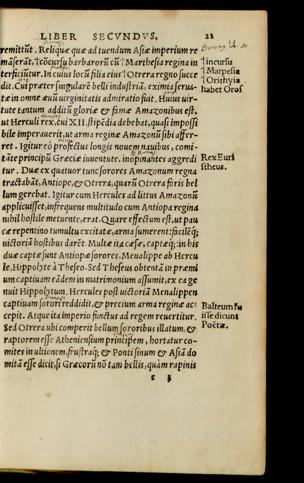 LIBER SECVNDVS. 21
remittũt. Reliquæ quæ ad tuendum Asiæ imperium re
mãserãt, †cõcursu barbarorũ cũ † Marthesia regina in
terficiũtur. In cuius locũ filia eius † Otrera regno succe
dit. Cui præter singularẽ belli industriã, eximia serua-
tæ in omne æuũ uirginitatis admiratio fuit. Huius uir-
tute tantum additũ gloriæ & famæ Amazonibus est,
ut Herculi rex, cui XII. stipẽdia debebat, quasi impossi
bile imperauerit, ut arma reginæ Amazonũ sibi affer-
ret. Igitur eò profectus longis nouem nauibus, comi-
tãte principũ Græciæ iuuentute, inopinantes aggredi
tur. Duæ ex quatuor tunc sorores Amazonum regna
tractabãt, Antiope, & Otrera, quarũ Otrera foris bel
lum gerebat. Igitur cum Hercules ad littus Amazonũ
applicuisset, infrequens multitudo cum Antiopa regina
nihil hostile metuente, erat. Quare effectum est, ut pau
cæ repentino tumultu excitatæ, arma sumerent: facilẽq;
uictoriã hostibus darẽt. Multæ ita cæsæ, captæq; in his
duæ captæ sunt Antiopæ sorores, Menalippe ab Hercu
le, Hippolyte à Theseo. Sed Theseus obtentã in præmi
um captiuam eãdem in matrimonium assumit, ex ea ge
nuit Hippolytum. Hercules post uictoriã Menalippen
captiuam sorori reddidit, & precium arma reginæ ac-
cepit. Atque ita imperio functus ad regem reuertitur.
Sed Otrera ubi comperit bellum sororibus illatum, &
raptorem esse Atheniensium principem, hortatur co-
mites in ultionem, frustraq; & Ponti sinum & Asiã do
mitã esse dicit, si Græcorũ nõ tam bellis, quàm rapinis
c 3
† incursu
† Marpesia
† Orithyia
habet Oros
Rex Euri
stheus.
Balteum fu
isse dicunt
Poëtæ.